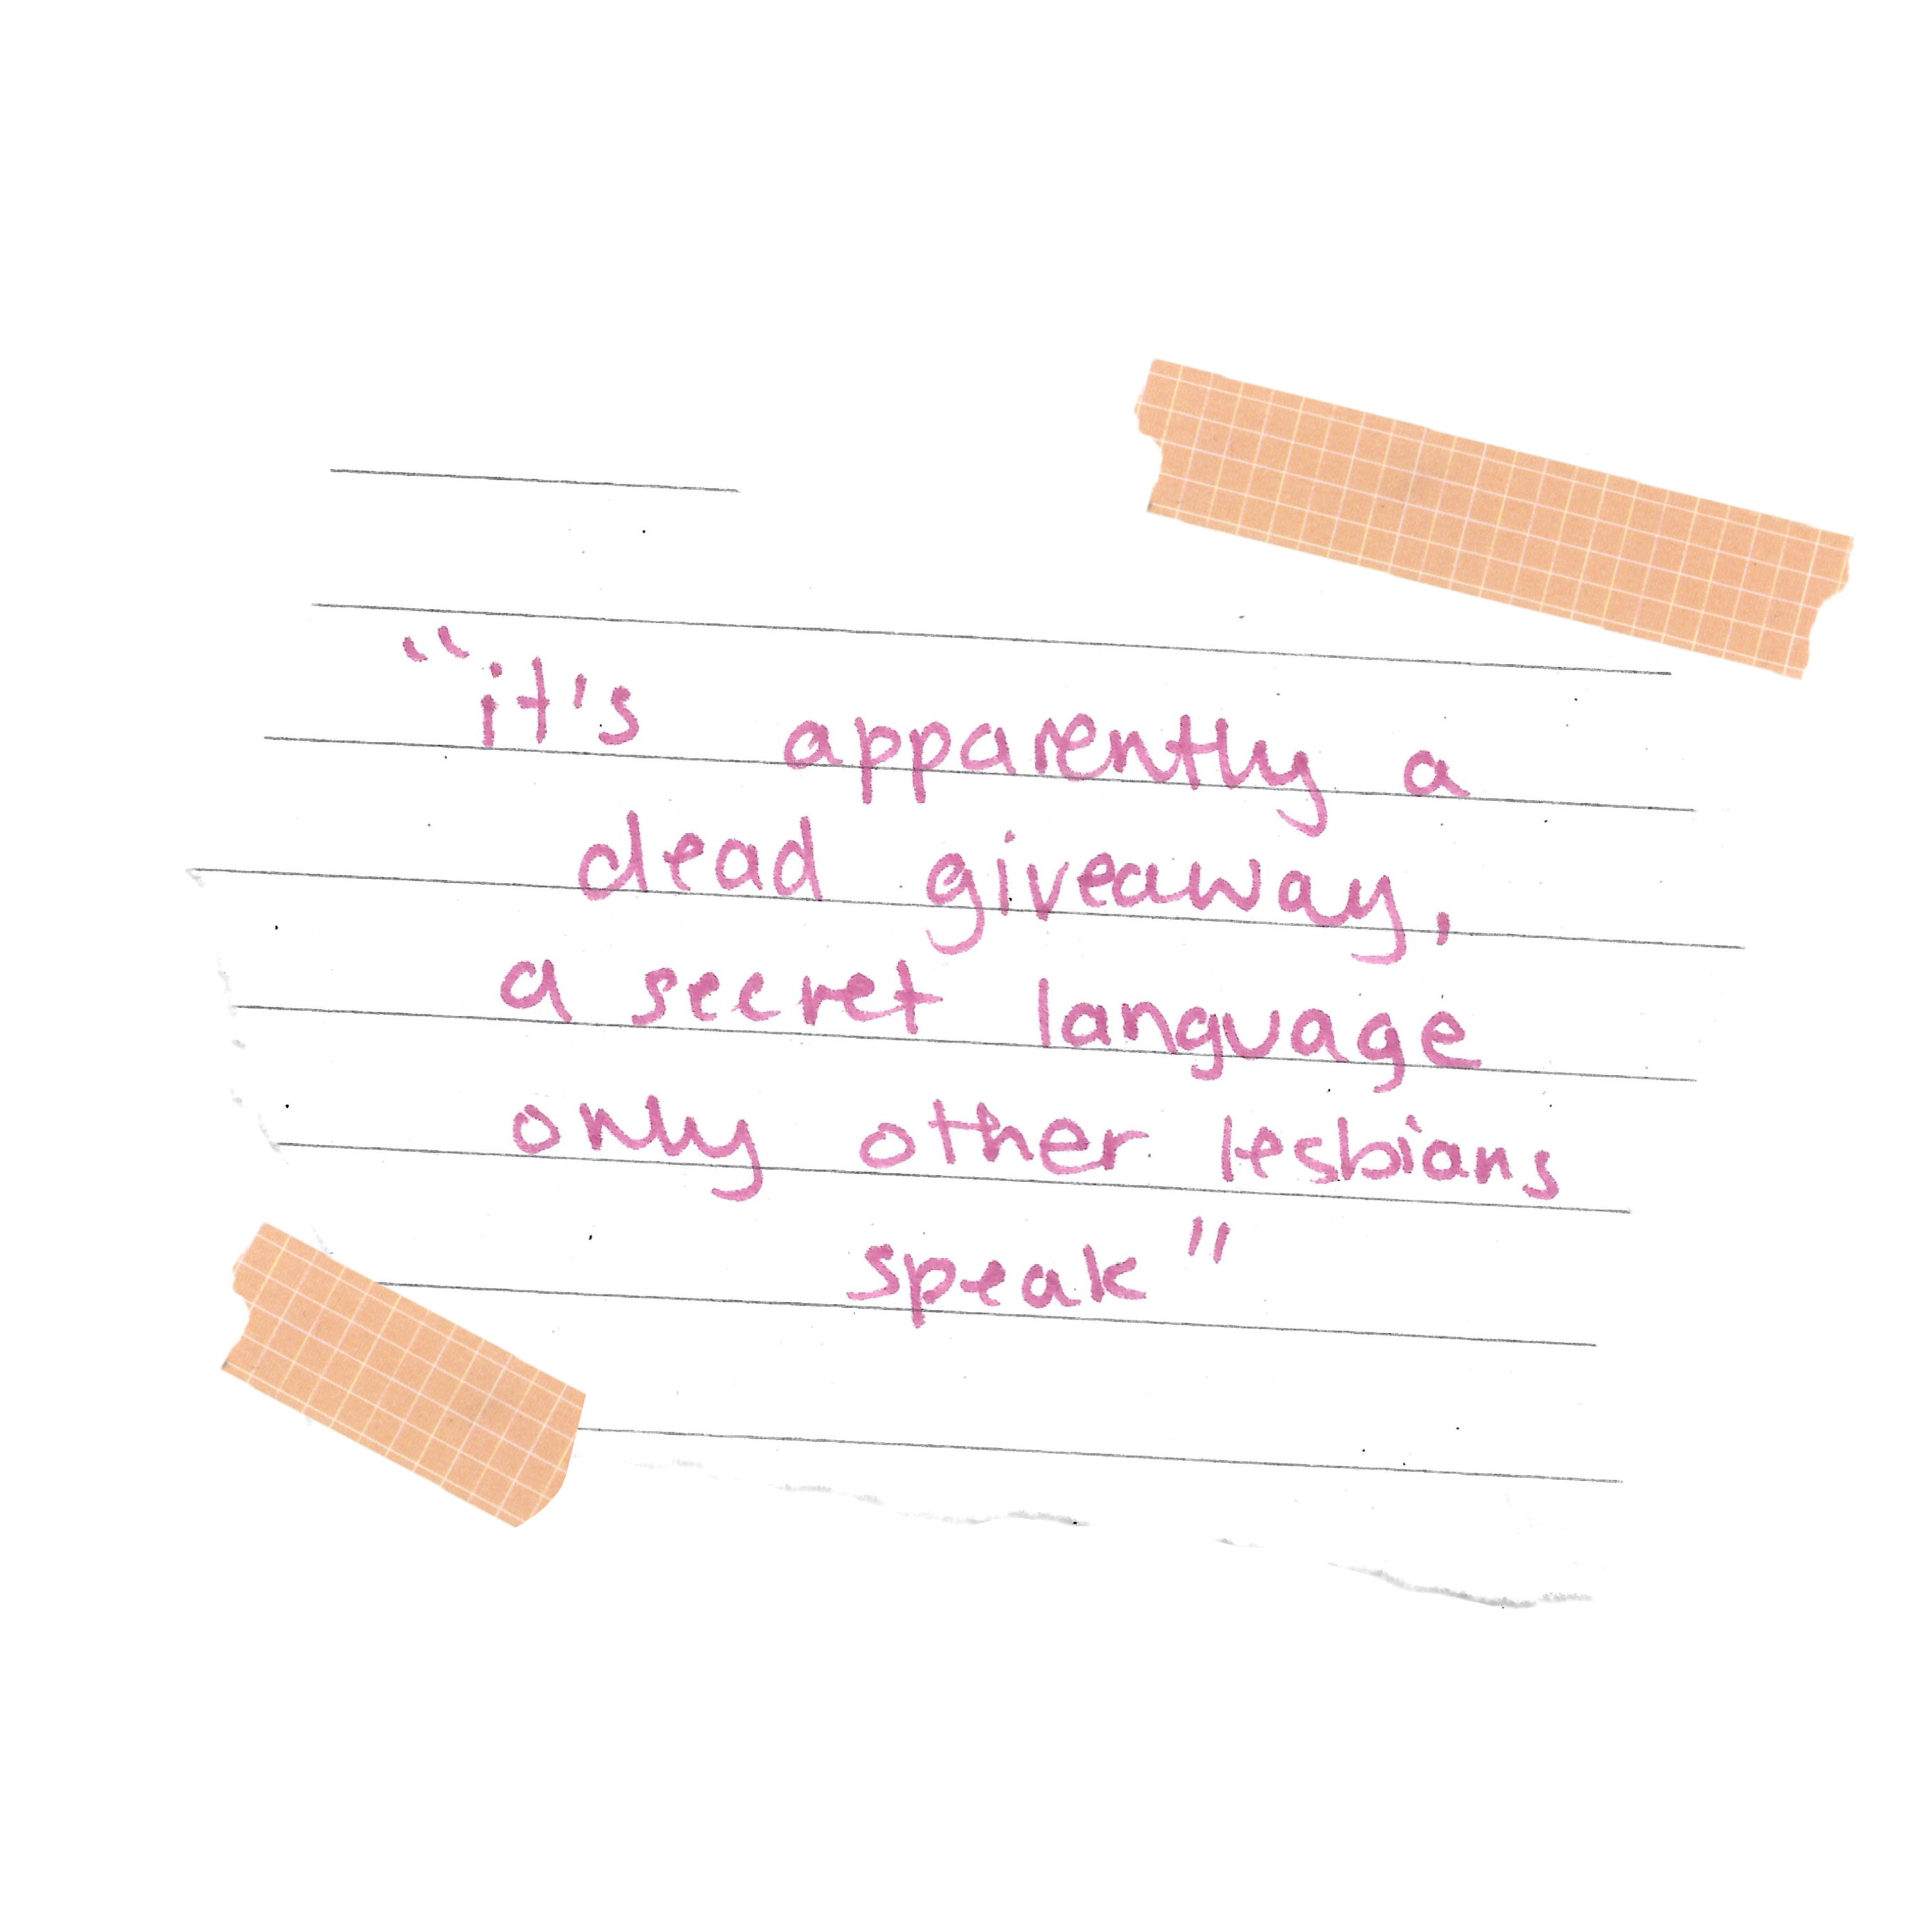 "it's apparently a
dead giveaway,
a secret language
only other lesbians
speak"